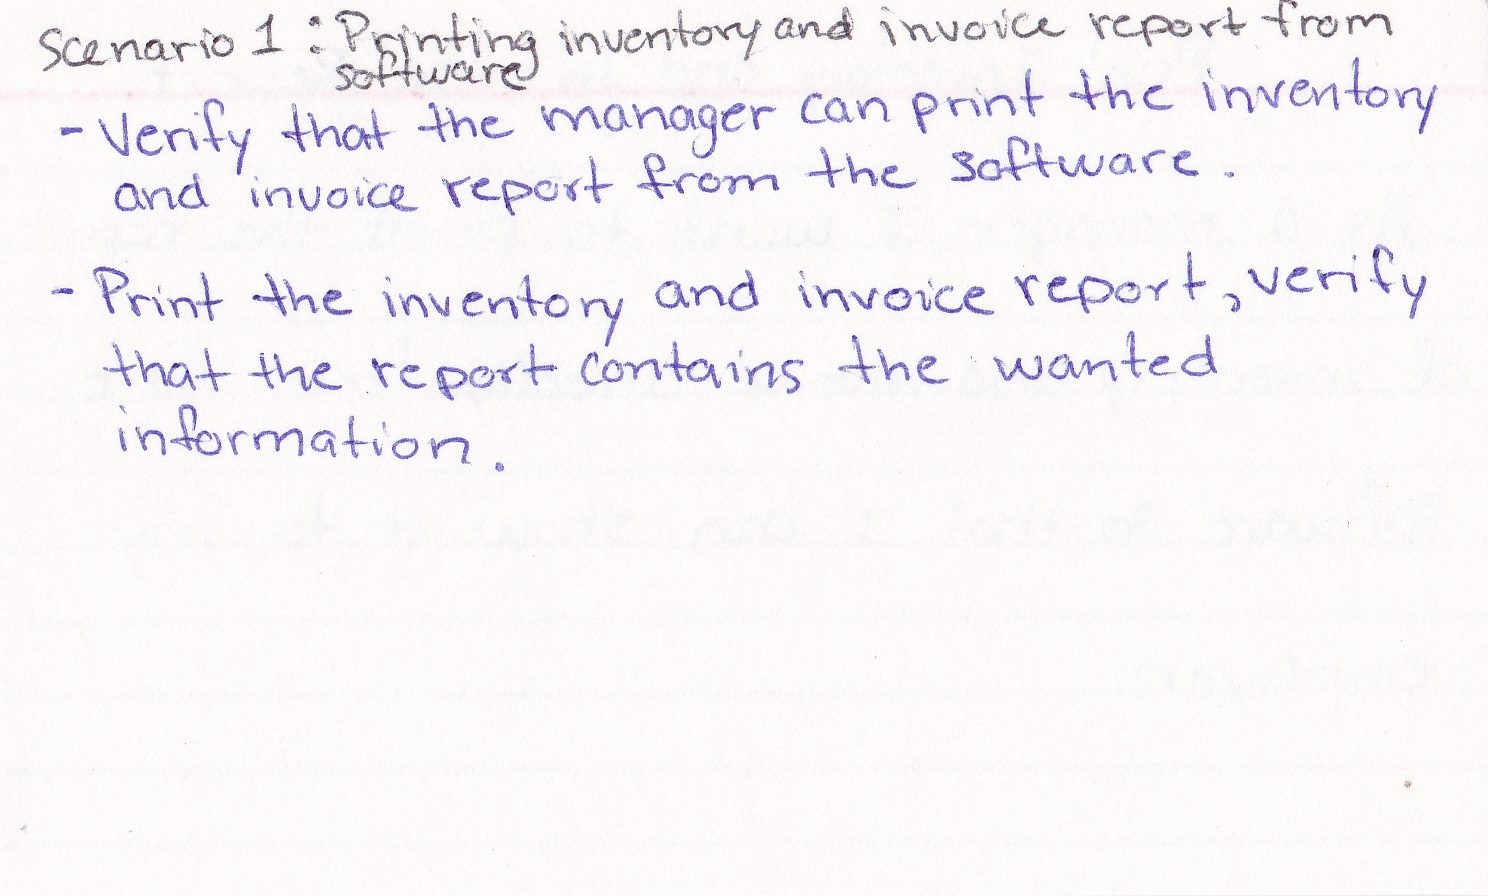 Scenario 1 : Printing inventory and invoice report from
software
- Verify that the manager can print the inventory
and invoice report from the software.
- Print the inventory and invoice report, verify
that the report contains the wanted
information.